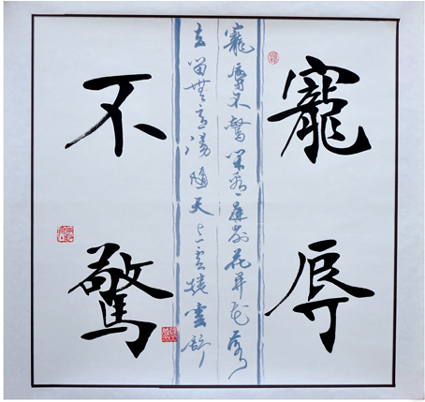 寵辱
寵辱不驚閑看庭前花開花落
去留無意漫隨天上雲捲雲舒
不驚